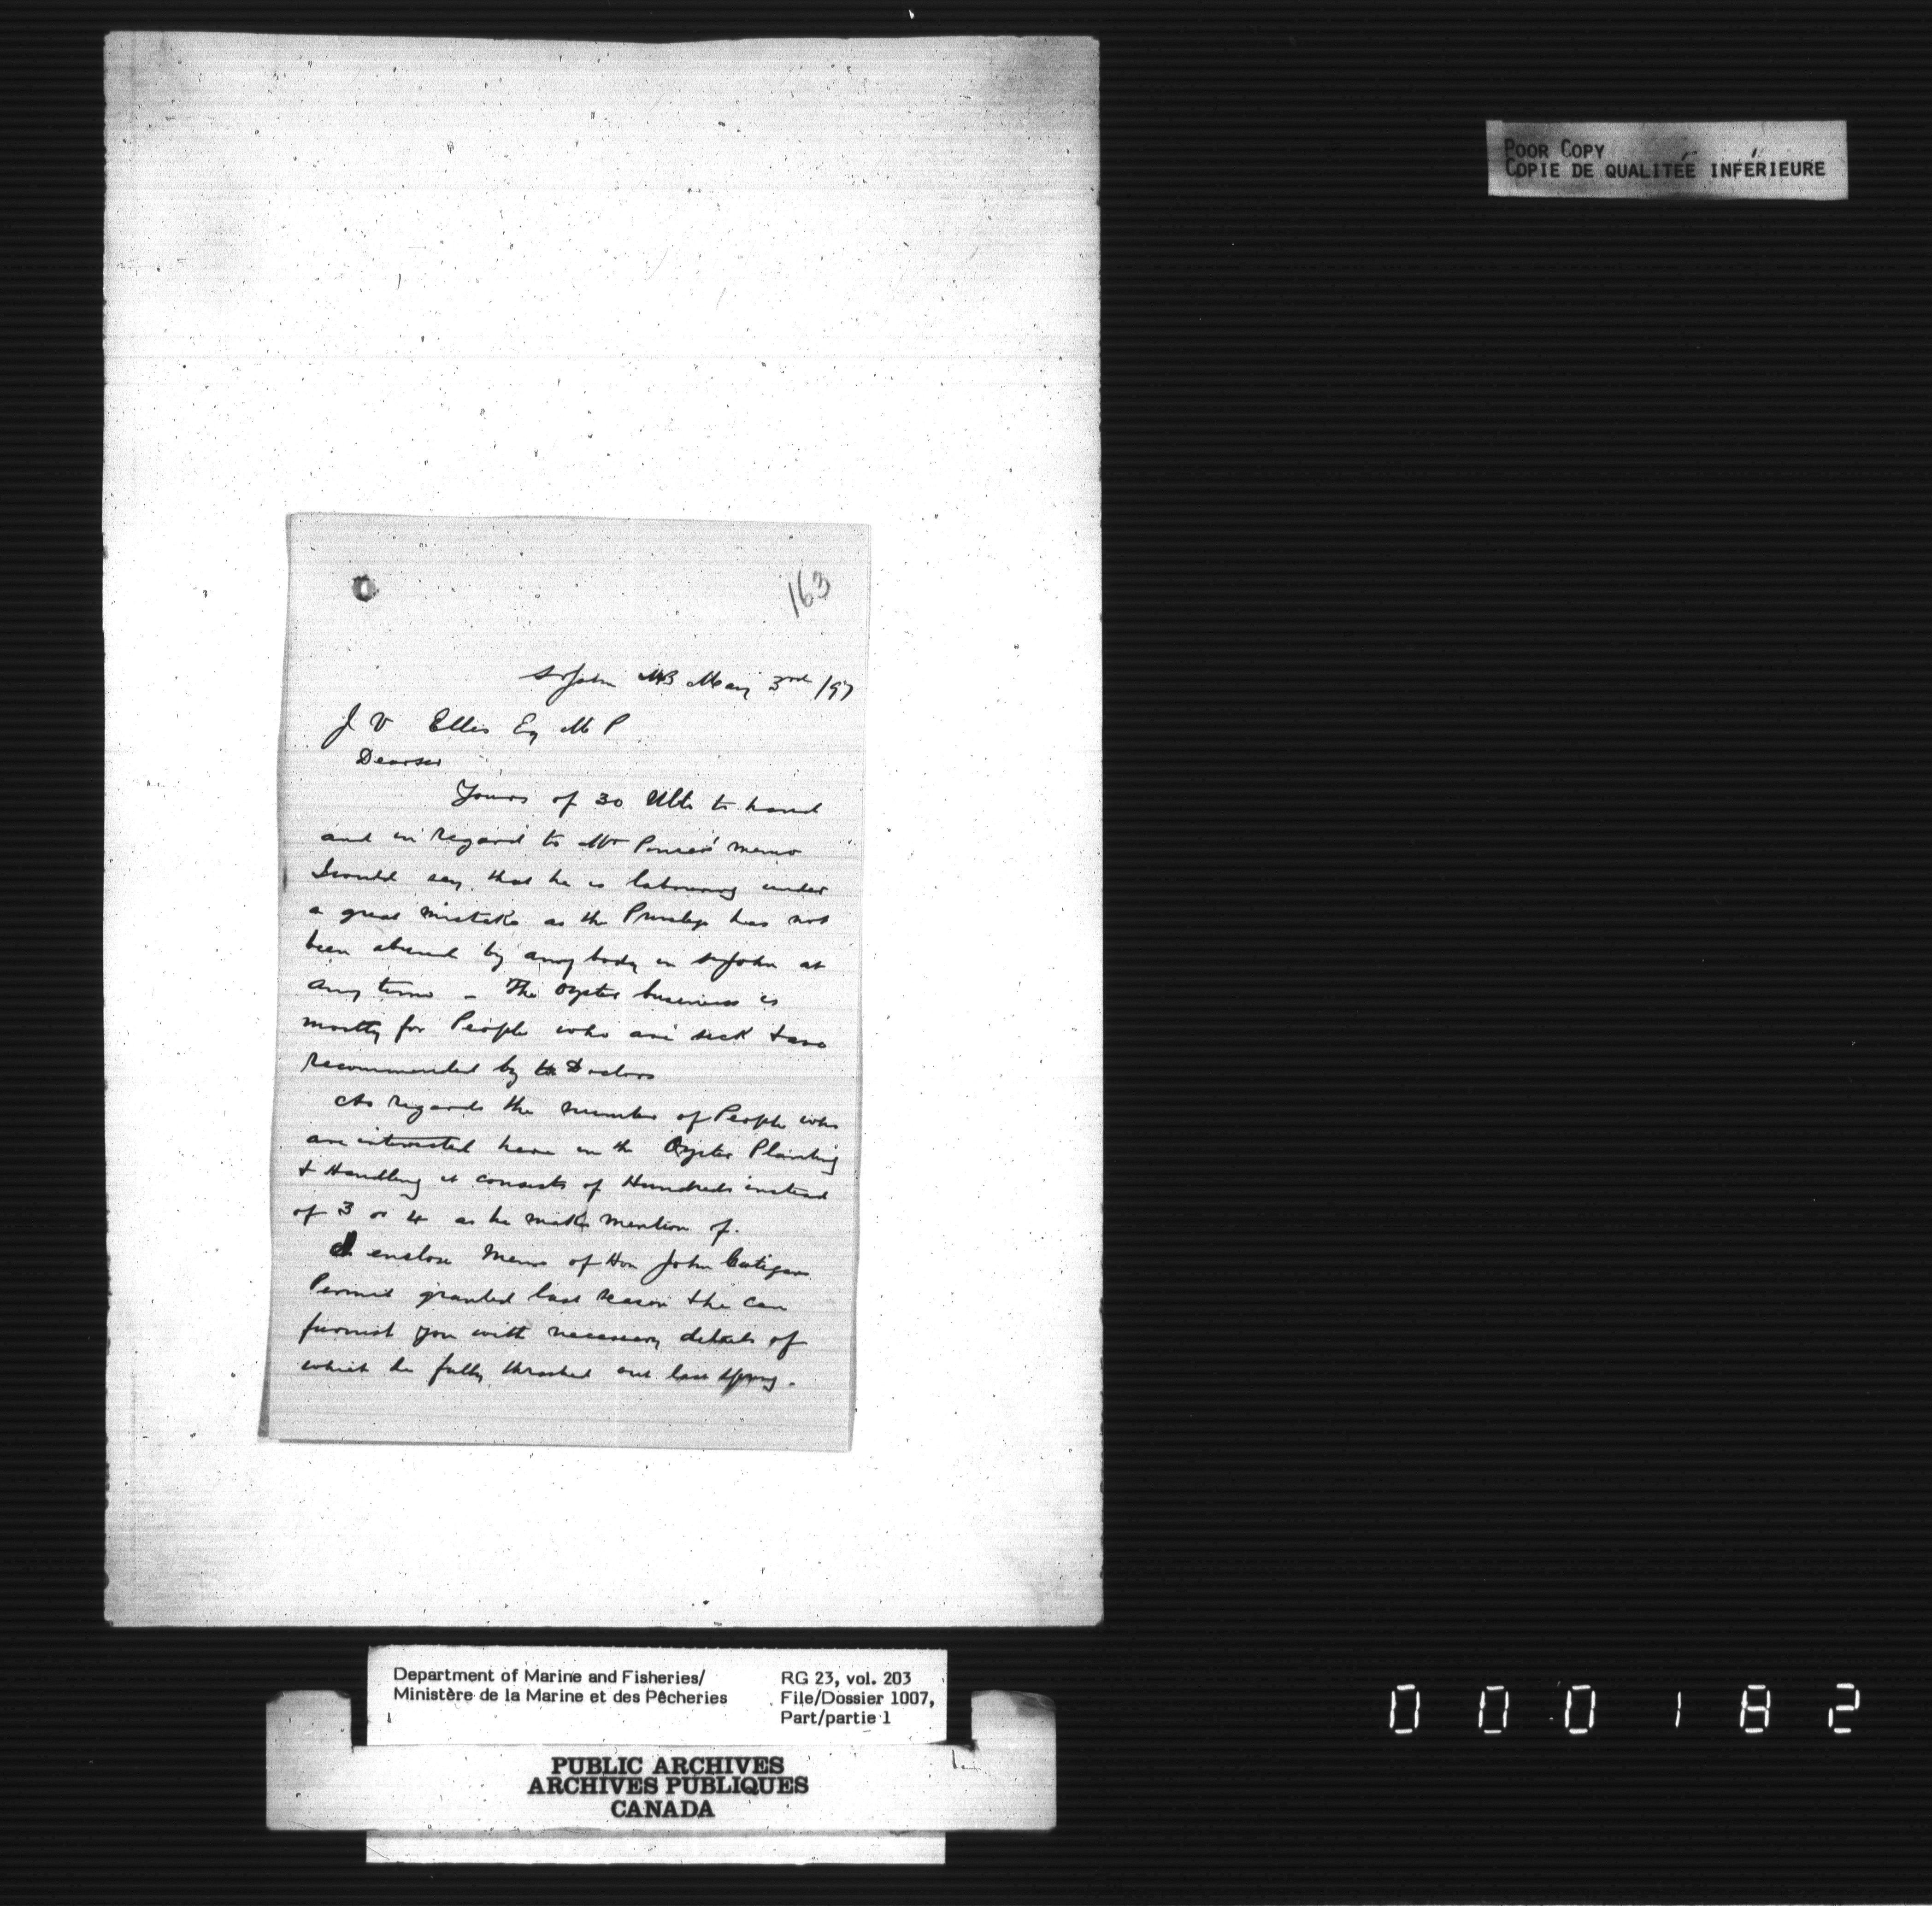 POOR COPY
COPIE DE QUALITÉE INFÉRIEURE
163
St John NB May 3rd /97
J V Ellis Esq M P
Dear sir
Yours of 30 Ulto to hand
and in regard to Mr memo
I would say that he is labouring under
a great mistake as the Privelege has not
been abused by any body in St John at
any time - The Oyster business is
mostly for People who are sick & are
recommended by the Doctors
As regards the number of People who
are interested here in the Oyster Planting
& Handling it consists of Hundreds instead
of 3 or 4 as he makes mention of.
I enclose Memo of Hon John Costigans
Permit granted last season & he can
furnish you with necessary details of
which he fully thrashed out last spring.
Department of Marine and Fisheries/
Ministère de la Marine et des Pêcheries
RG 23, vol. 203
File/Dossier 1007,
Part/partie 1
PUBLIC ARCHIVES
ARCHIVES PUBLIQUES
CANADA
000182